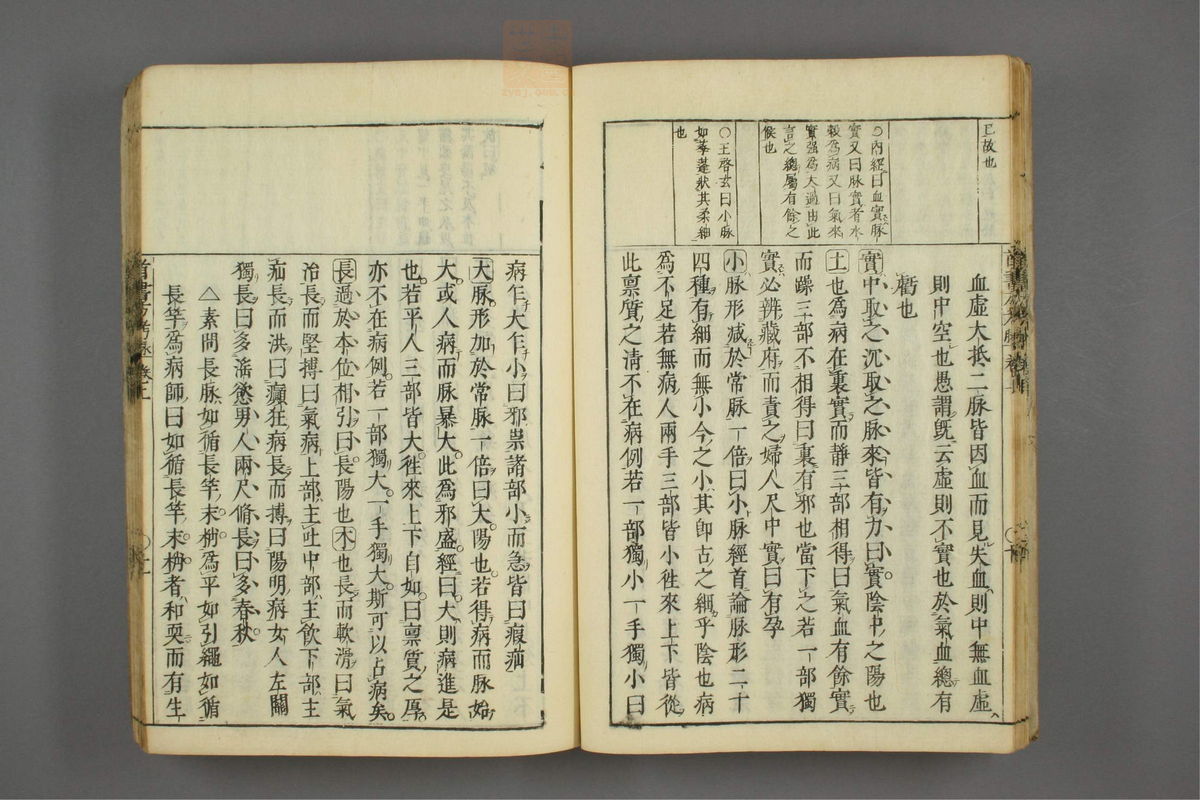 巳故也
○內經曰血實脉
實又曰脉實者水
穀為病又曰氣來
實强為大過由此
言之總屬有餘之
候也
○王啓玄曰小脉
如莘蓬狀其柔細
也
血虛大抵二脉皆因血而見失血則中無血虛
則中空也愚謂旣云虛則不實也於氣血總有
虧也
實中取之沉取之脉來皆有力曰實陰中之陽也
土也為病在裏實而靜三部相得曰氣血有餘實
而躁三部不相得曰裏有邪也當下之若一部獨
實必辨藏府而責之婦人尺中實曰有孕
小脉形減於常脉一倍曰小脉經首論脉形二十
四種有細而無小今之小其卽古之細乎陰也病
為不足若無病人兩手三部皆小徃來上下皆從
此禀質之淸不在病例若一部獨小一手獨小曰
病乍大乍小曰邪祟諸部小而急皆曰瘕疝
大脉形加於常脉一倍曰大陽也若得病而脉始
大或人病而脉暴大此為邪盛經曰大則病進是
也若平人三部皆大徃來上下自如曰禀質之厚
亦不在病例若一部獨大一手獨大斯可以占病矣
長過於本位相引曰長陽也木也長而軟滑曰氣
治長而堅搏曰氣病上部主吐中部主飲下部主
疝長而洪曰癲狂病長而搏曰陽明病女人左關
獨長曰多滛慾男人兩尺脩長曰多春秋
△素問長脉如循長竿末梢為平如引繩如循
長竿為病師曰如循長竿末梢者和耎而有生